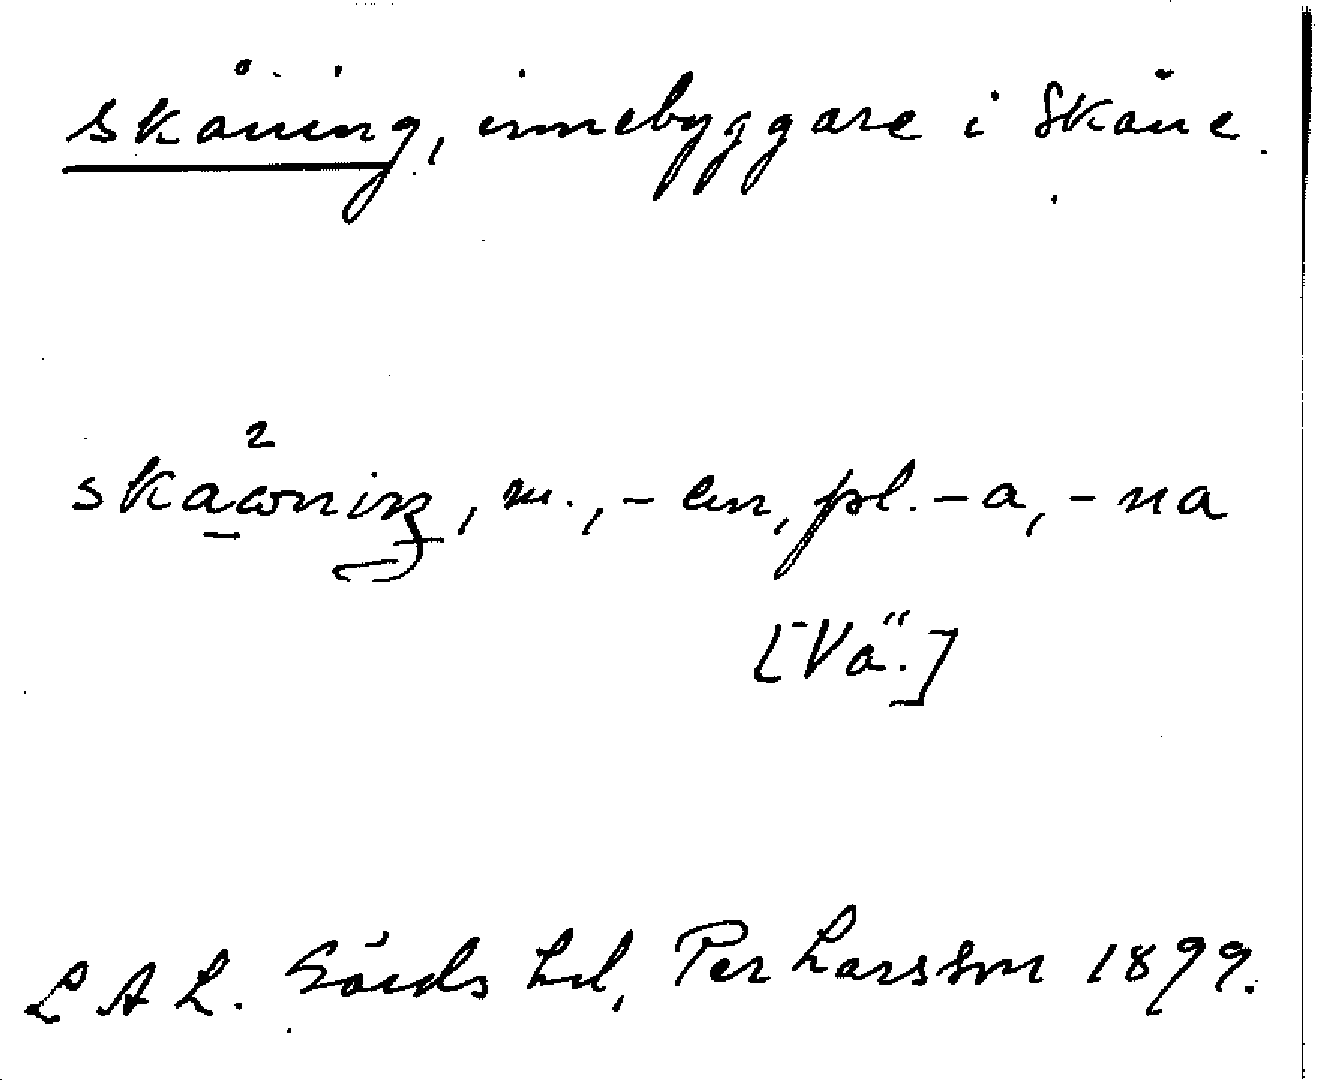 skåning, innebyggare i Skåne.
skaωniŋ, m., -en, pl. -a, -na
[Vä.]
L A L. Gärds hd, Per Larsson 1899.